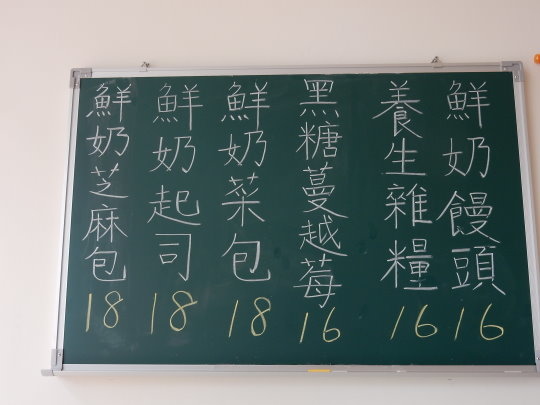 鮮奶饅頭16
養生雜糧16
黑糖蔓越莓16
鮮奶菜包18
鮮奶起司18
鮮奶芝麻包18